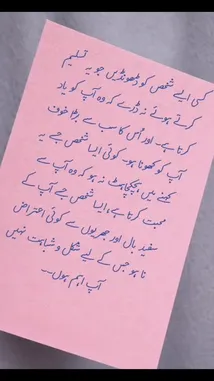 کسی ایسے شخص کو ڈھونڈیں جو یہ تسلیم
کرتے ہوئے نہ ڈرے کہ وہ آپ کو یاد
کرتا ہے۔ اور اُس کا سب سے بڑا خوف
آپ کو کھونا ہو۔ کوئی ایسا شخص جسے یہ
کہنے میں ہچکچاہٹ نہ ہو کہ وہ آپ سے
محبت کرتا ہے، ایسا شخص جسے آپ کے
سفید بال اور جھریوں سے کوئی اعتراض
نا ہو جس کے لیے شکل و شباہت نہیں
آپ اہم ہوں۔۔